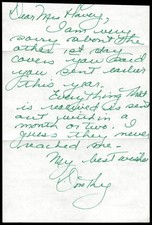 Dear Mrs Harey,
I am very
sorry about the
other 1st day
covers you said
you sent earlier
this year.
Everything that
is received is sent
out within a
month or two. I
guess they never
reached me.
My best wishes